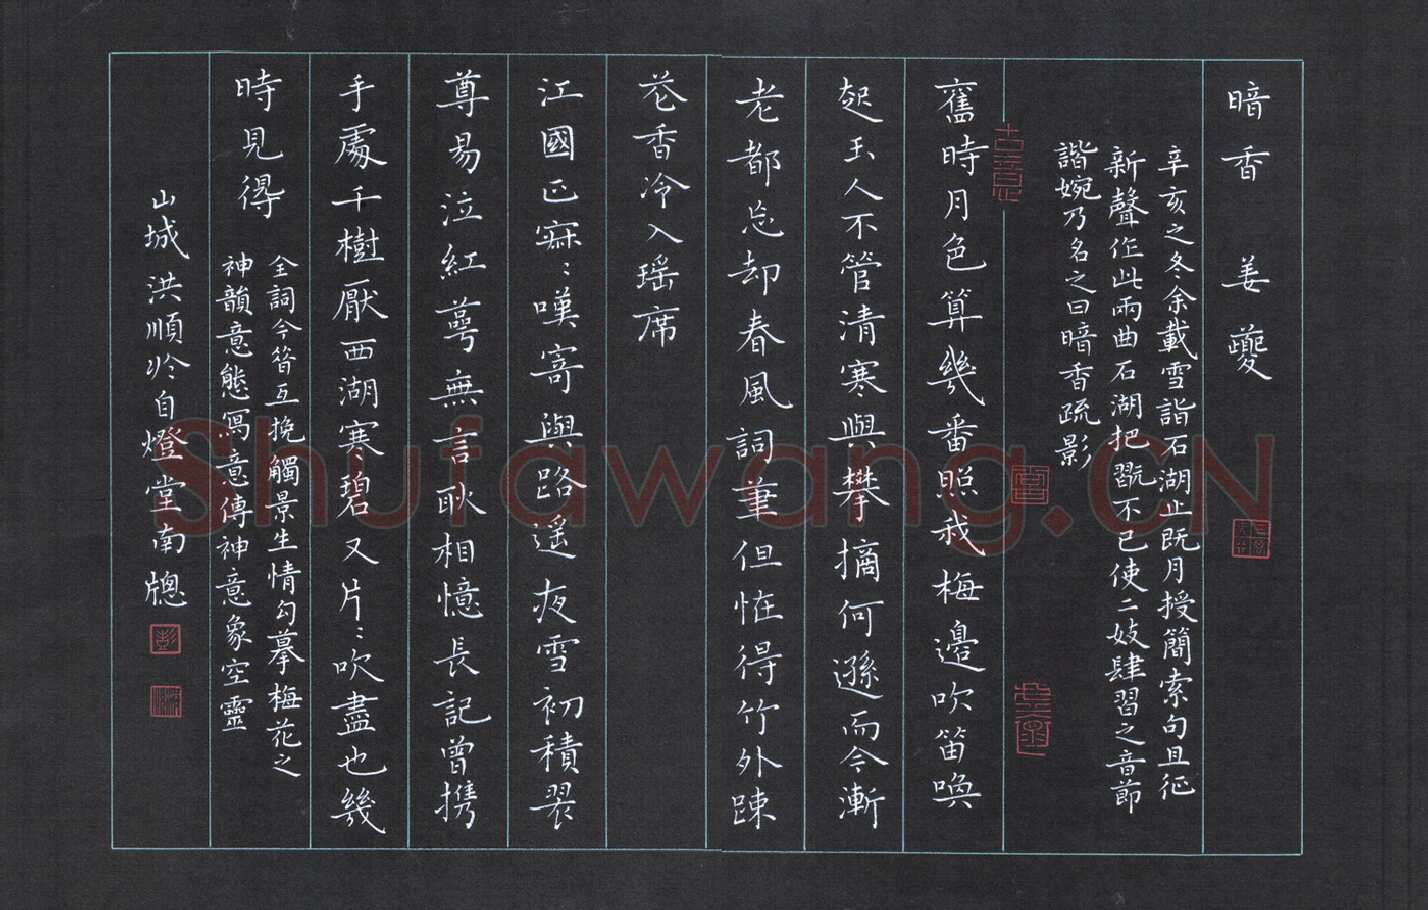 暗香 姜夔
辛亥之冬余載雪詣石湖止既月授簡索句且征
新聲作此兩曲石湖把翫不已使二妓肆習之音節
諧婉乃名之曰暗香疏影
舊時月色算幾番照我梅邊吹笛喚
起玉人不管清寒與攀摘何遜而今漸
老都忘却春風詞筆但恠得竹外踈
花香冷入瑶席
江國正寂〻嘆寄與路遥夜雪初積翠
尊易泣紅萼無言耿相憶長記曾携
手處千樹厭西湖寒碧又片〻吹盡也幾
時見得
全詞今昔互挽觸景生情勾摹梅花之
神韻意態寫意傳神意象空靈
山城洪順於自燈堂南牕
Shufawang.CN